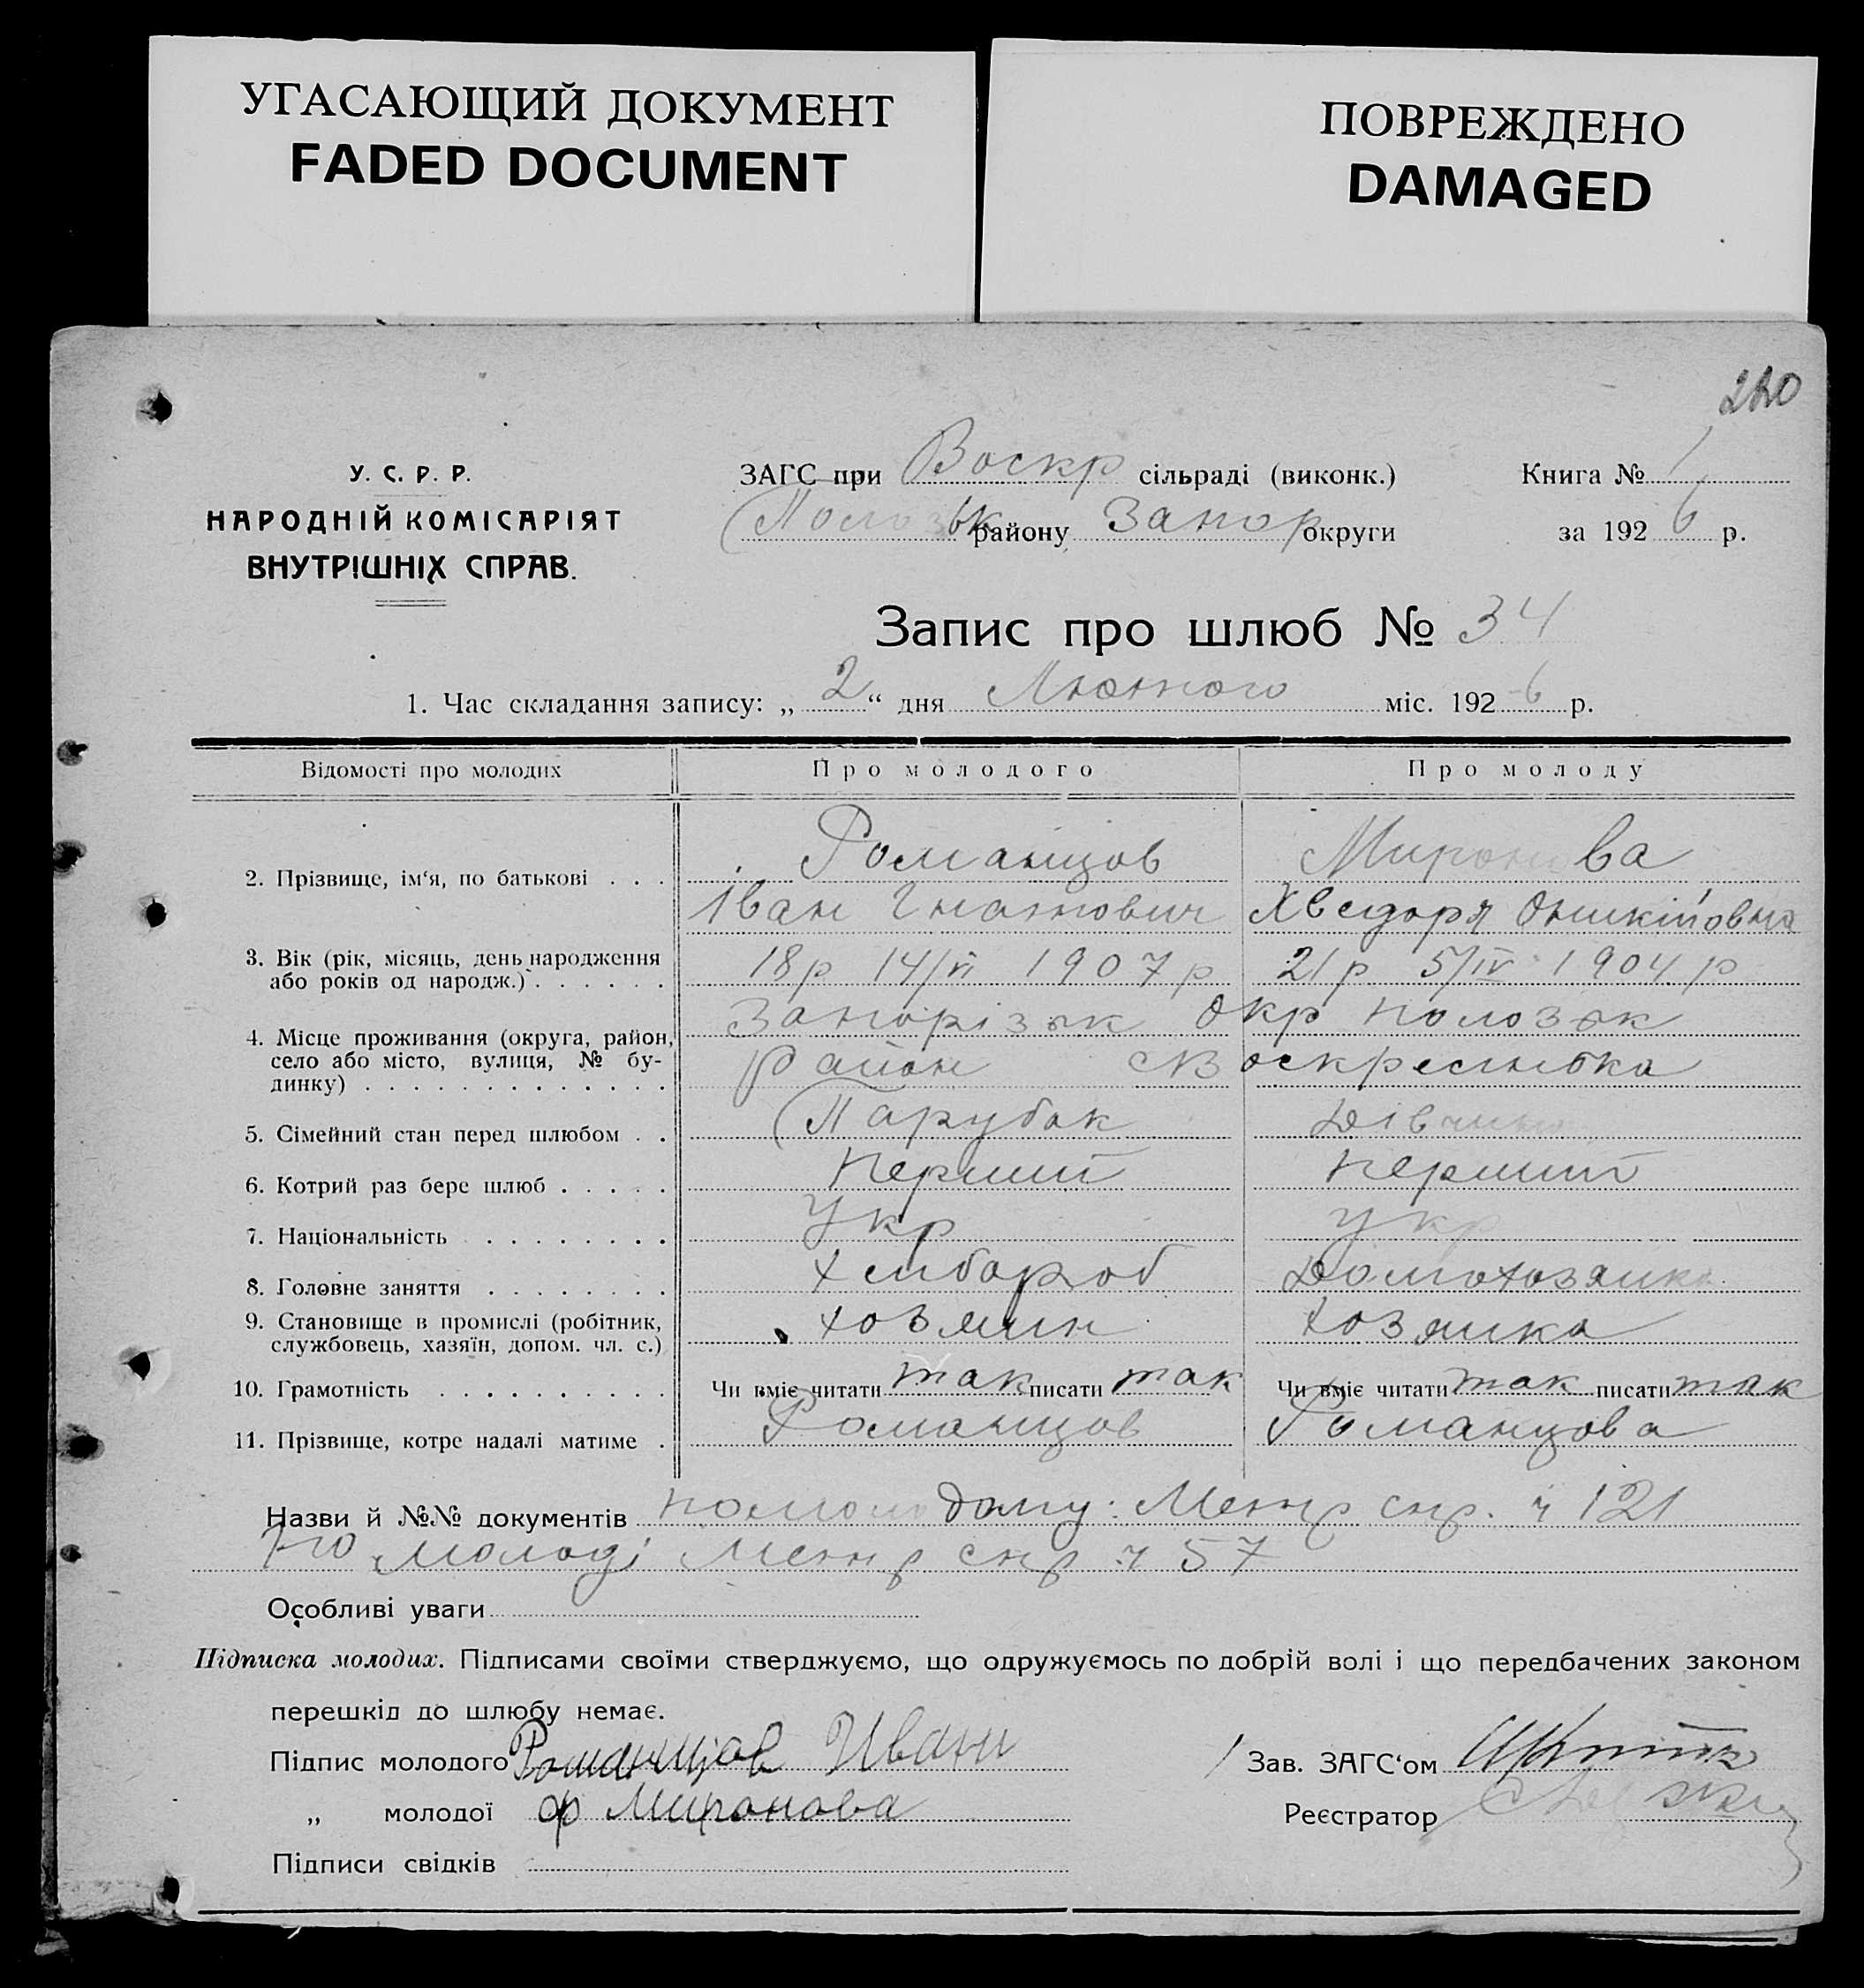 УГАСАЮЩИЙ ДОКУМЕНТ
FADED DOCUMENT
ПОВРЕЖДЕНО
DAMAGED
220
У. С. Р. Р.
НАРОДНІЙ КОМІСАРІЯТ
ВНУТРІШНІХ СПРАВ.
ЗАГС при Воскр сільраді (виконк.) Книга № 1
Полозьк району Запор округи за 1926 р.
Запис про шлюб № 34
1. Час складання запису: „ 2 “ дня Лютого міс. 1926 р.
Відомості про молодих Про молодого Про молоду
2. Прізвище, ім‘я, по батькові . . . Романцов Миронова
Іван Гнатович Хведоря Оникійовна
3. Вік (рік, місяць, день народження або років од народж.) . . . . . . 18 р 14/VI 1907 р 21 р 5/IV 1904 р
4. Місце проживання (округа, район, село або місто, вулиця, № будинку) . . . . . . . . . . . . . Запорізьк Окр Полозьк
район с Воскресенбка
5. Сімейний стан перед шлюбом . . Парубок Дівчина
6. Котрий раз бере шлюб . . . . . Перший Перший
7. Національність . . . . . . . . Укр Укр
8. Головне заняття . . . . . . . . Хлибороб Домохозяика
9. Становище в промислі (робітник, службовець, хазяїн, допом. чл. с.) хозяин хозяика
10. Грамотність . . . . . . . . . . Чи вміє читати так писати так Чи вміє читати так писати так
11. Прізвище, котре надалі матиме . Романцов Романцова
Назви й №№ документів по молодому: Метр спр. ч 121
По молоді Метр спр ч 57
Особливі уваги
Підписка молодих. Підписами своїми стверджуємо, що одружуємось по добрій волі і що передбачених законом
перешкід до шлюбу немає.
Підпис молодого Романцов Иван Зав. ЗАГС‘ом
„ молодої Ф Миронова Реєстратор
Підписи свідків